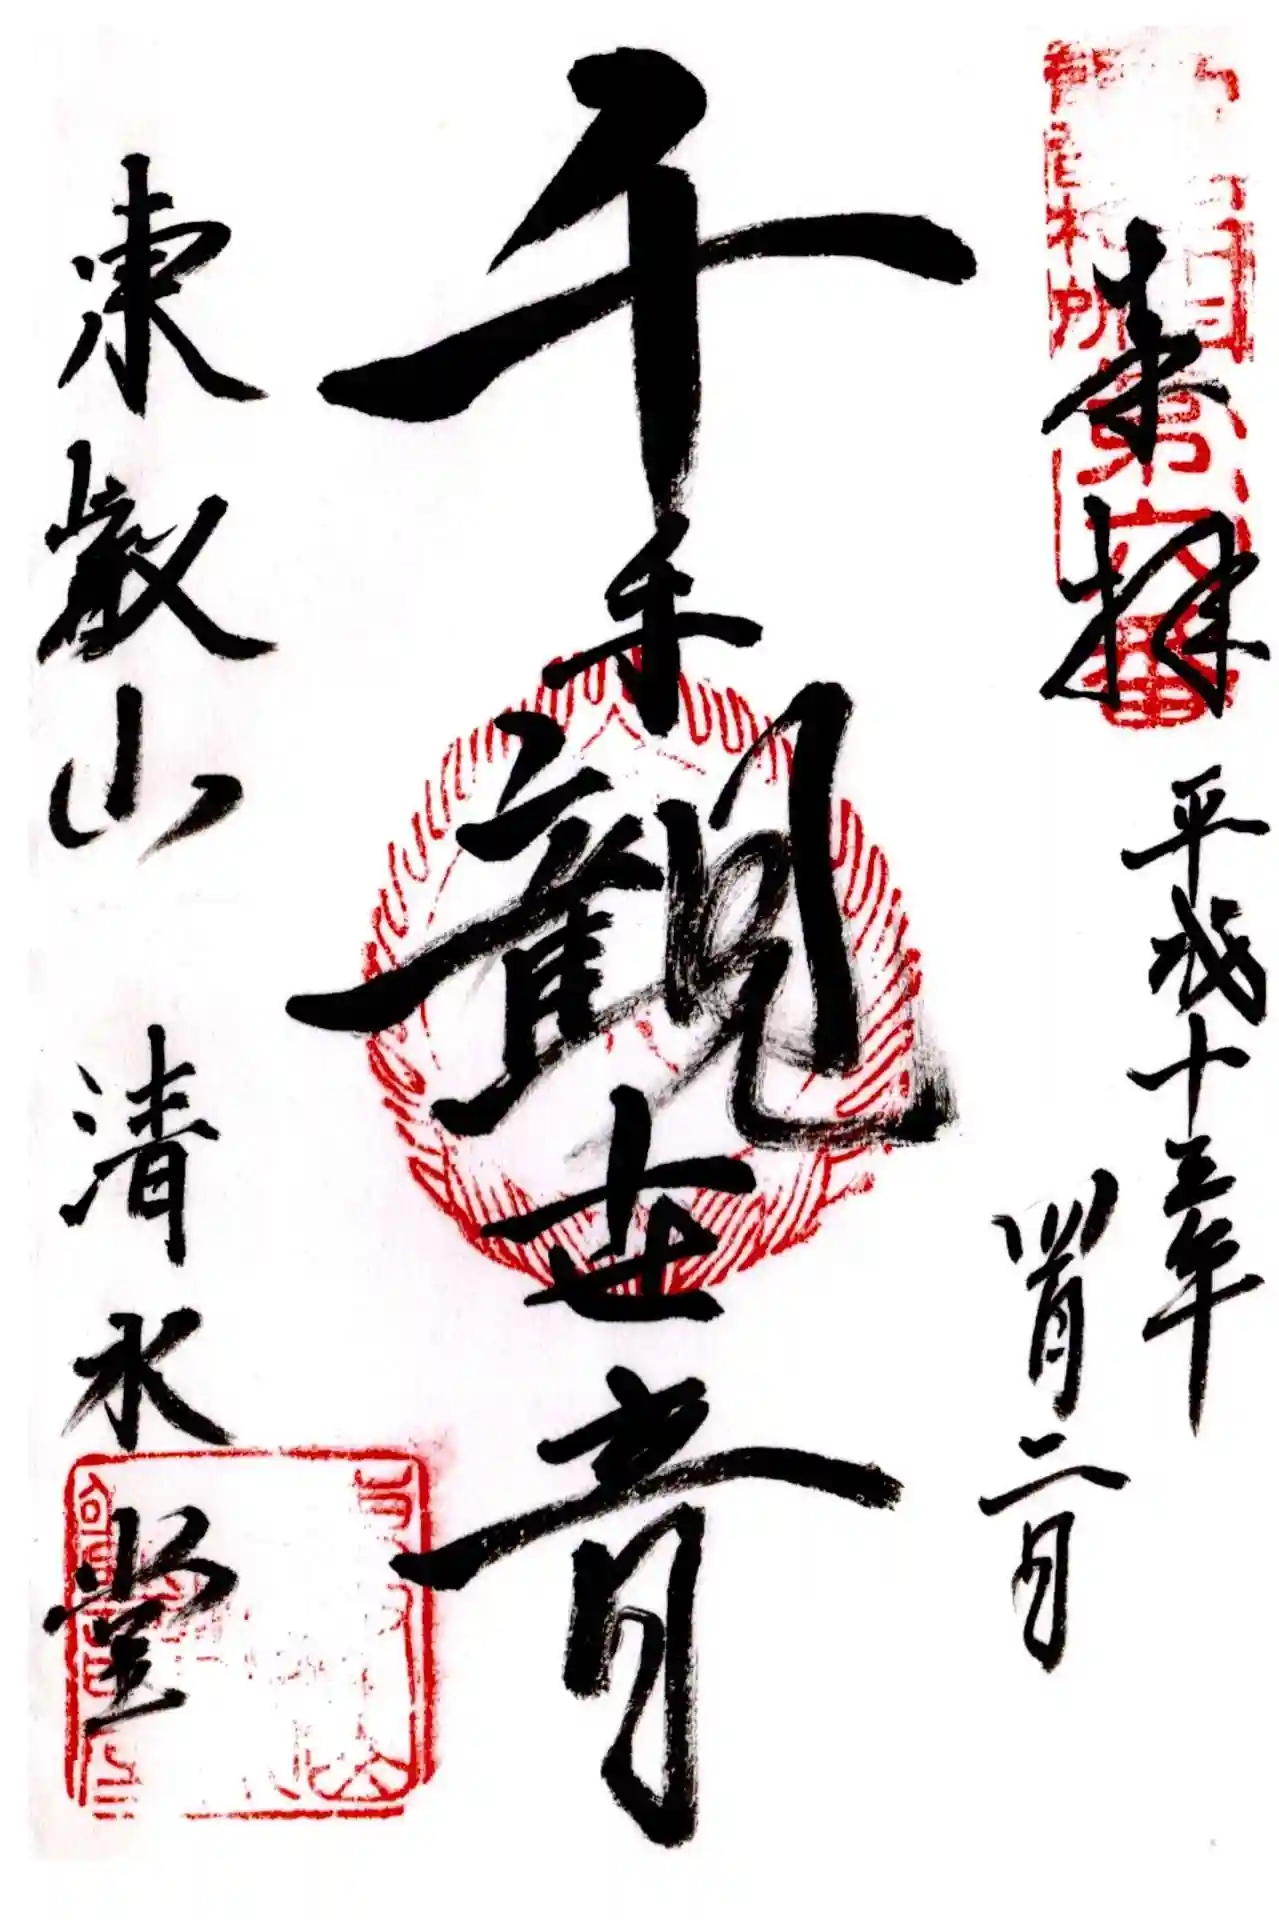 奉拝
平成十三年
四月二日
千手観世音
東叡山 清水堂